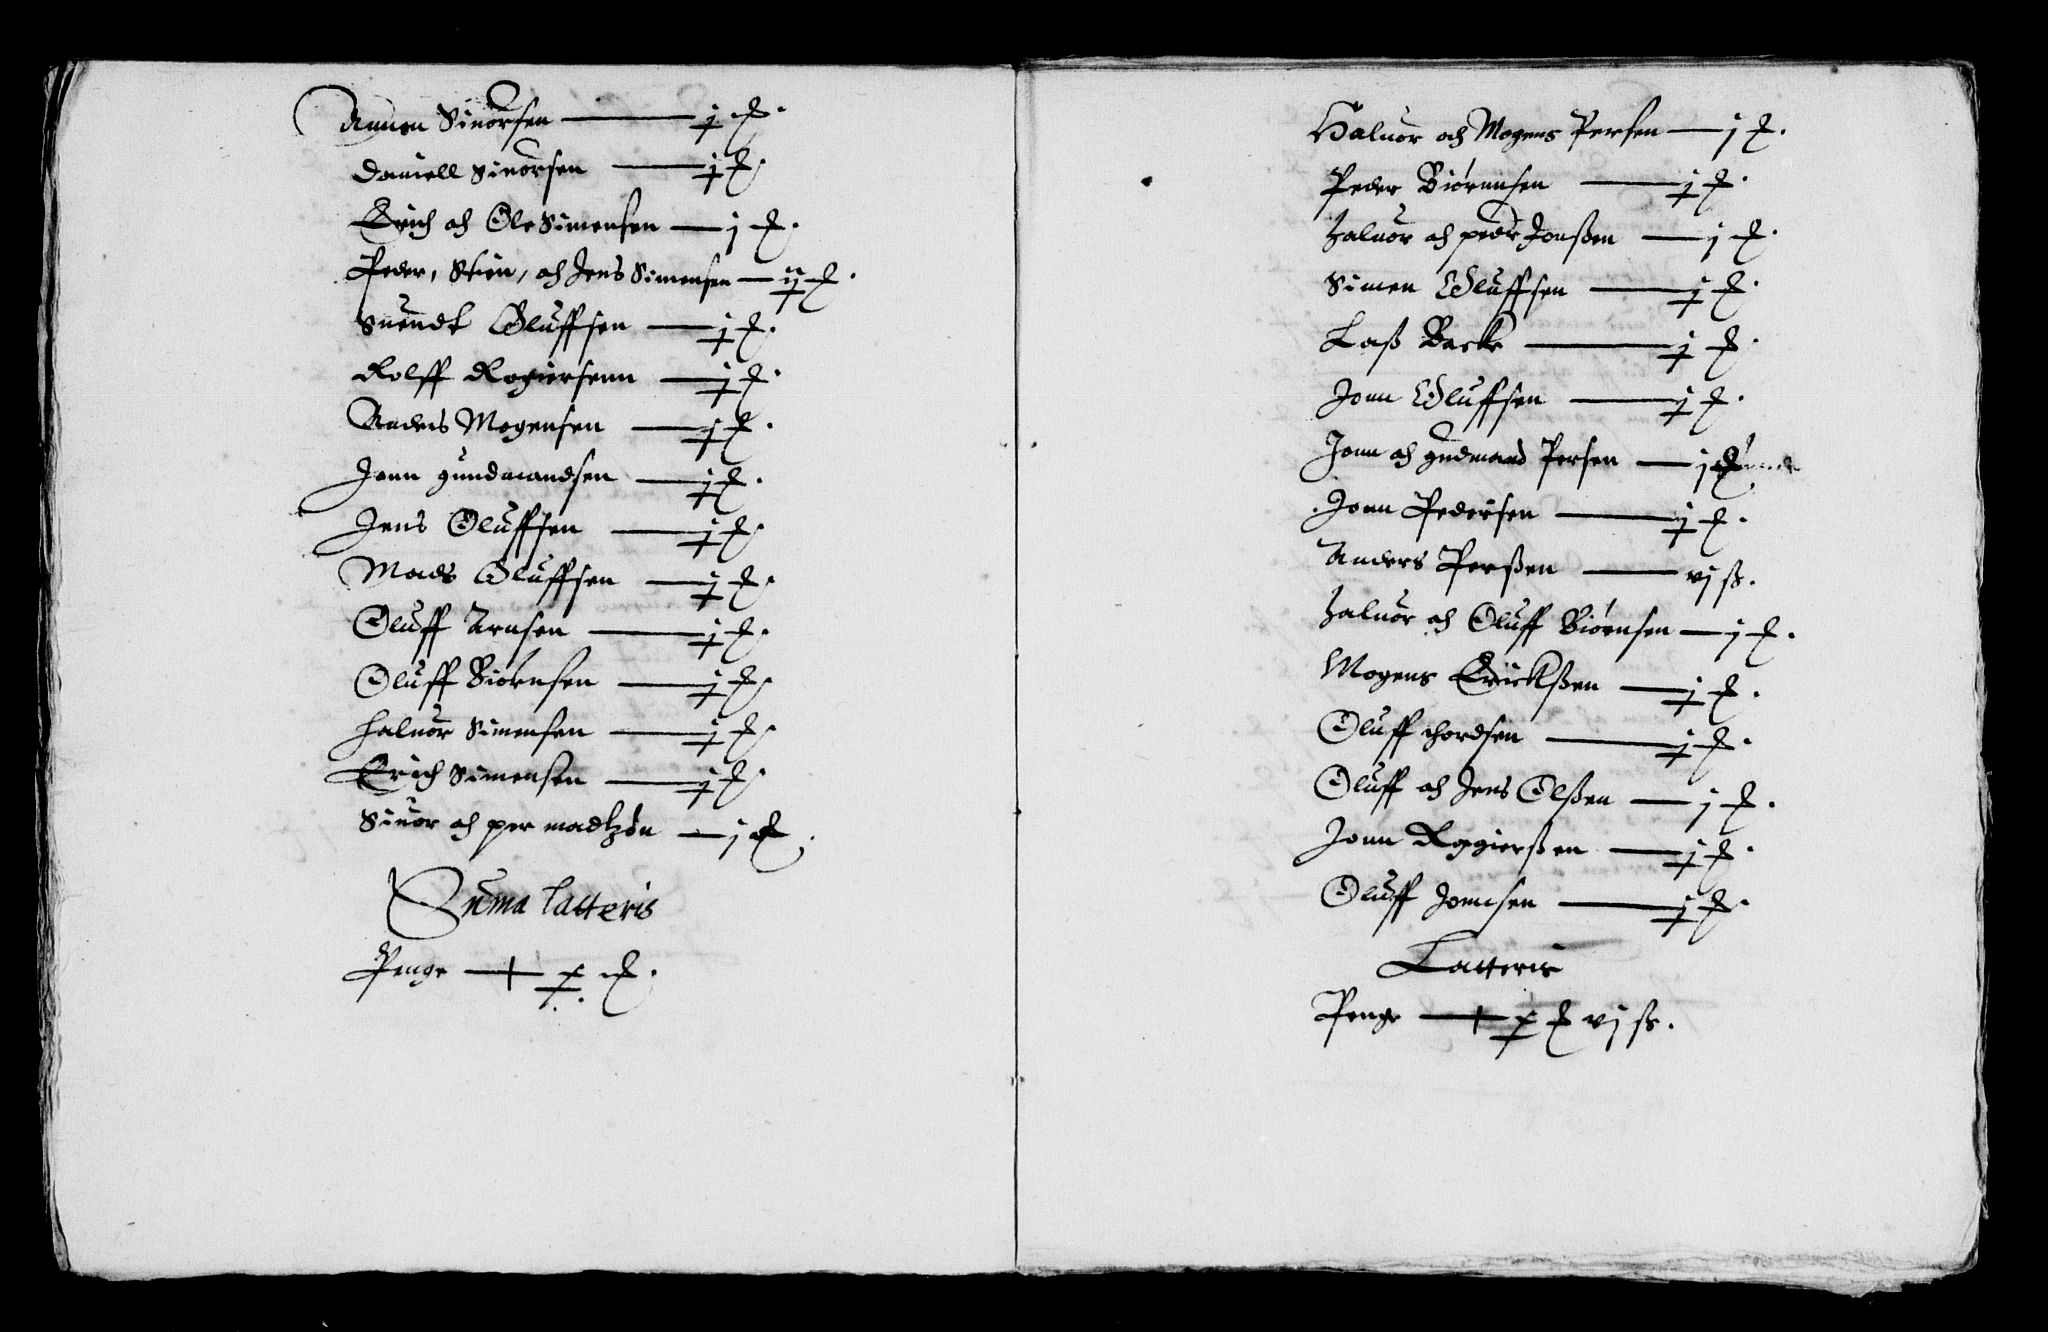 Aunen Siuorsen — j d.
Daniell Siuorsen — j d.
Erich och Ole Simensen — j d.
Peder, Stien, och Jens Simensen — ij d.
Suendt Oluffsen — j d.
Rolff Rogiersenn — j d.
Anders Mogensen — j d.
Jonn gundmandsen — j d.
Jens Oluffsen — j d.
Mads Oluffsen — j d.
Oluff Arnsen — j d.
Oluff Biörnsen — j d.
Haluor Simensen — j d.
Erich Simensen — j d.
Siuor och per madtzön — j d.
Suma Latteris
Penge — x d.
Haluor och Mogens Persen — j d.
Peder Biörnnsen — j d.
Haluor och peder Jonßen — j d.
Simen Oluffsen — j d.
Laß Backe — j d.
Jonn Oluffsen — j d.
Jonn och gudmand Persen — j d.
Jonn Pedersen — j d.
Anders Perßen — vj ß.
Haluor och Oluff Biörnsen — j d.
Mogens Erickßen — j d.
Oluff thordsen — j d.
Oluff och Jens Olßen — j d.
Jonn Roggierßen — j d.
Oluff Jonnsen — j d.
Latteris
Penge — x d vj ß.